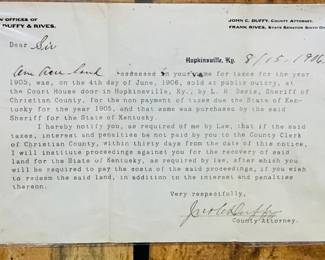 OFFICES OF
DUFFY & RIVES.
JOHN C. DUFFY, COUNTY ATTORNEY.
FRANK RIVES, STATE SENATOR SIXTH
Dear Sir
Hopkinsville, Ky. 8/15-1906
assessed in your name for taxes for the year
1905, was, on the 4th day of June, 1906, sold at public outcry, at
the Court House door in Hopkinsville, Ky., by L. R. Davis, Sheriff of
Christian County, for the non payment of taxes due the State of Ken-
tucky for the year 1905, and that same was purchased by the said
Sheriff for the State of Kentucky.
I hereby notify you, as required of me by Law, that if the said
taxes, interest and penalties be not paid by you to the County Clerk
of Christian County, within thirty days from the date of this notice,
I will institute proceedings against you for the recovery of said
land for the State of Kentucky, as required by law, after which you
will be required to pay the costs of the said proceedings, if you
wish to redeem the said land, in addition to the interest and penalties
thereon.
Very respectfully,
Jno C Duffy
County Attorney.